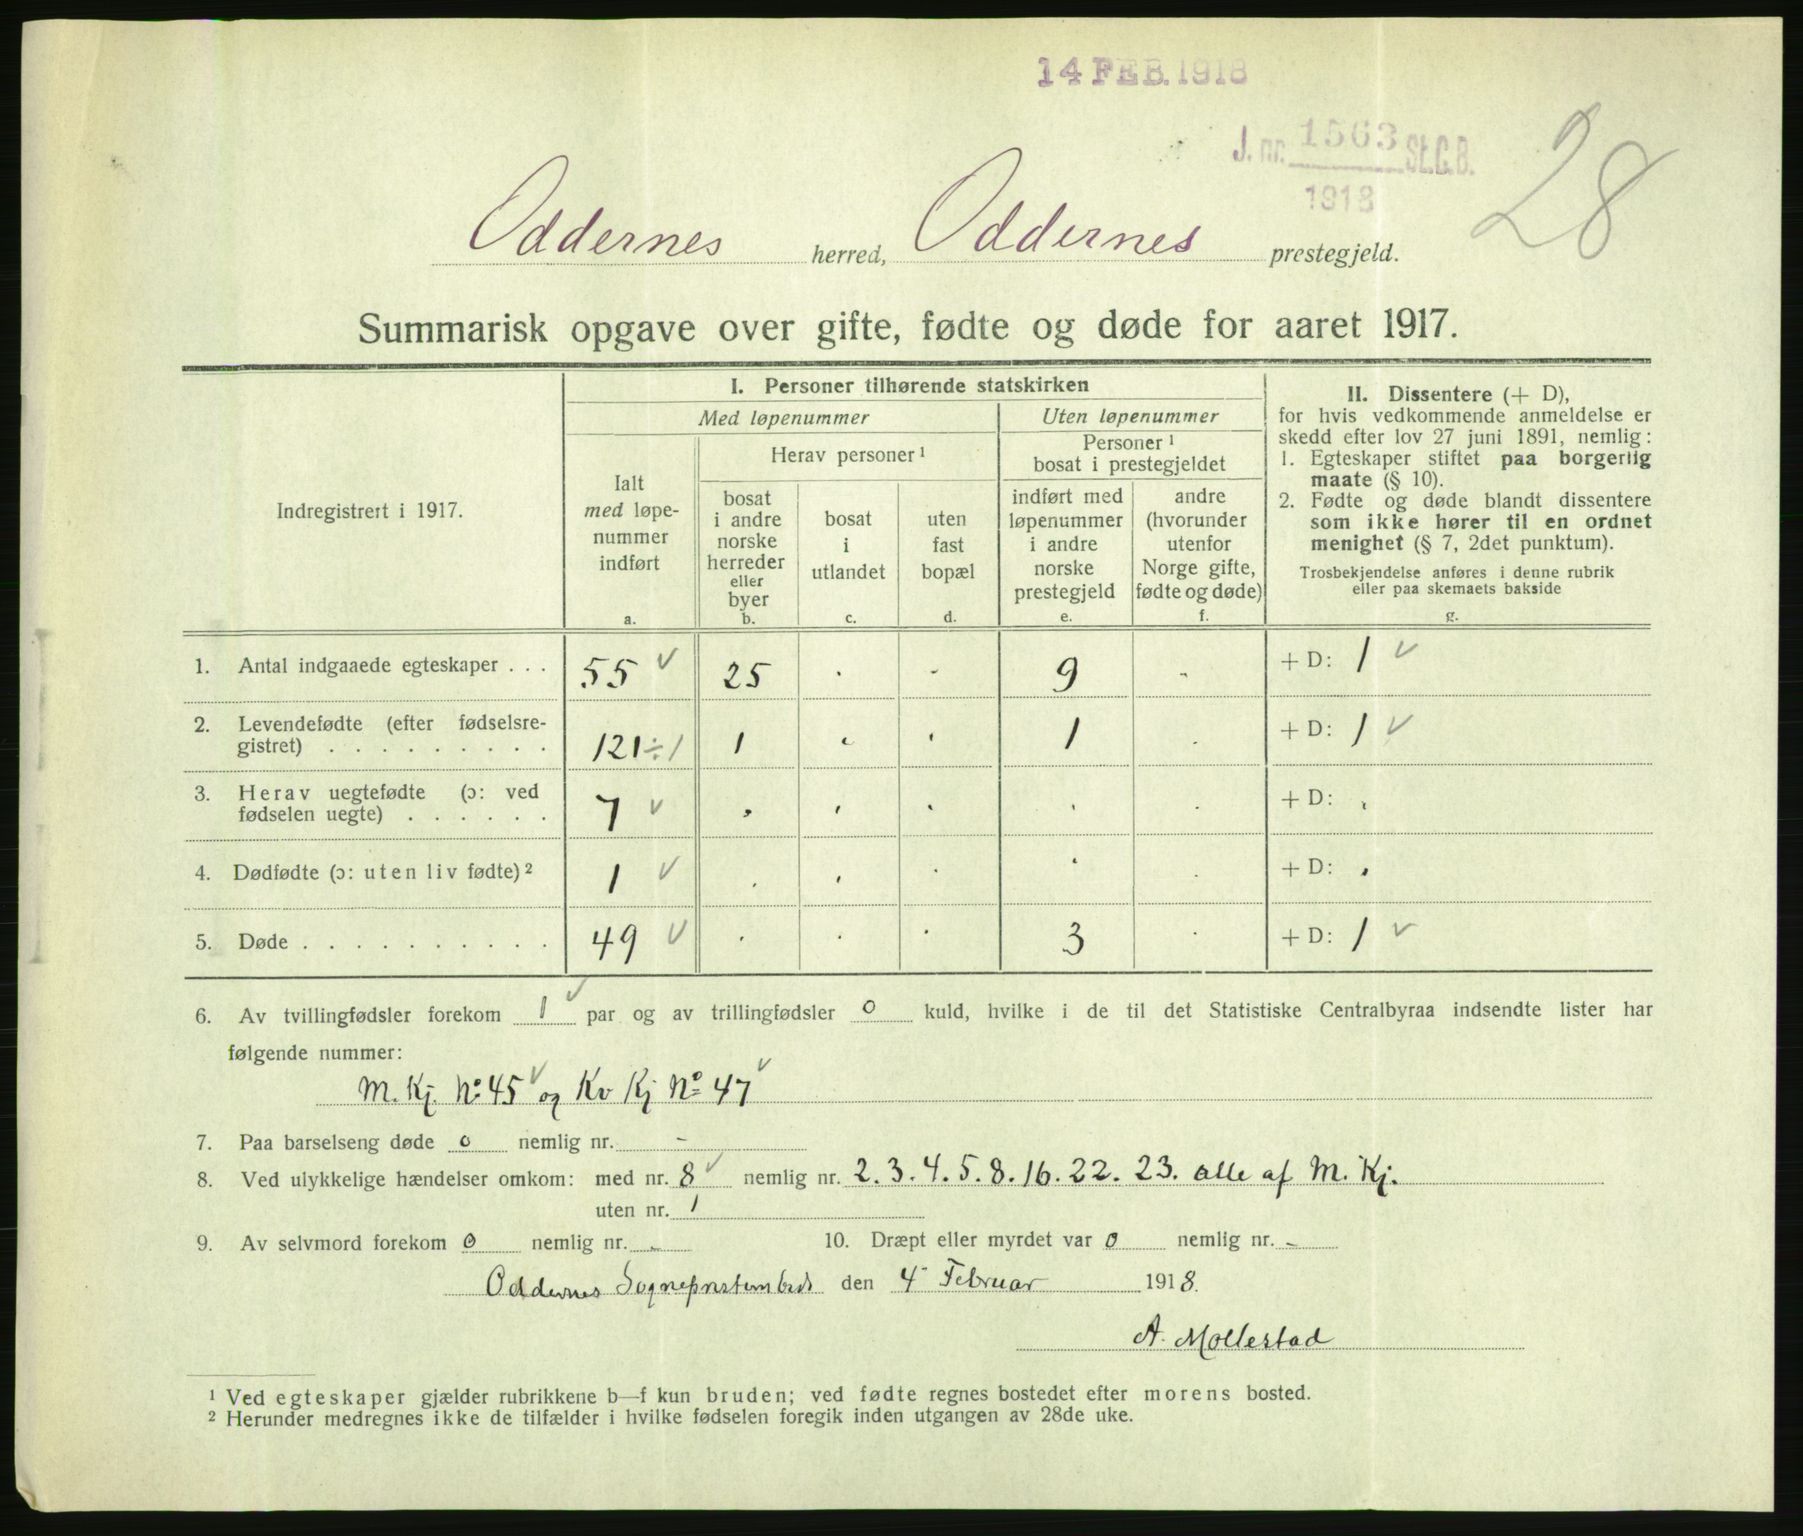 14 FEB. 1918
J. nr. 1563 St.C.B.
1918
28
Oddernes herred, Oddernes prestegjeld.
Summarisk opgave over gifte, fødte og døde for aaret 1917.
Indregistrert i 1917.
I. Personer tilhørende statskirken
Med løpenummer
Uten løpenummer
Ialt
med løpe-
nummer
indført
a.
Herav personer ¹
bosat
i andre
norske
herreder
eller
byer
b.
bosat
i
utlandet
c.
uten
fast
bopæl
d.
Personer ¹
bosat i prestegjeldet
indført med
løpenummer
i andre
norske
prestegjeld
e.
andre
(hvorunder
utenfor
Norge gifte,
fødte og døde)
f.
II. Dissentere (+ D),
for hvis vedkommende anmeldelse er
skedd efter lov 27 juni 1891, nemlig:
1. Egteskaper stiftet paa borgerlig
maate (§ 10).
2. Fødte og døde blandt dissentere
som ikke hører til en ordnet
menighet (§ 7, 2det punktum).
Trosbekjendelse anføres i denne rubrik
eller paa skemaets bakside
g.
1. Antal indgaaede egteskaper . . . 55 ✓ 25 · - 9 - + D: 1 ✓
2. Levendefødte (efter fødselsre-
gistret) . . . . . . . . . 121 ÷ 1 1 · · 1 · + D: 1 ✓
3. Herav uegtefødte (ɔ: ved
fødselen uegte) . . . . . . 7 ✓ · · · · · + D: ·
4. Dødfødte (ɔ: uten liv fødte) ² 1 ✓ · · · · · + D: ·
5. Døde . . . . . . . . . . 49 ✓ · · · 3 · + D: 1 ✓
6. Av tvillingfødsler forekom 1 ✓ par og av trillingfødsler 0 kuld, hvilke i de til det Statistiske Centralbyraa indsendte lister har
følgende nummer:
M. Kj. No 45 ✓ og Kv Kj No 47 ✓
7. Paa barselseng døde 0 nemlig nr. -
8. Ved ulykkelige hændelser omkom: med nr. 8 ✓ nemlig nr. 2. 3. 4. 5. 8. 16. 22. 23. alle af M. Kj.
uten nr. 1
9. Av selvmord forekom 0 nemlig nr. - 10. Dræpt eller myrdet var 0 nemlig nr. -
Oddernes den 4 Februar 1918.
A. Mollestad
¹ Ved egteskaper gjælder rubrikkene b—f kun bruden; ved fødte regnes bostedet efter morens bosted.
² Herunder medregnes ikke de tilfælder i hvilke fødselen foregik inden utgangen av 28de uke.